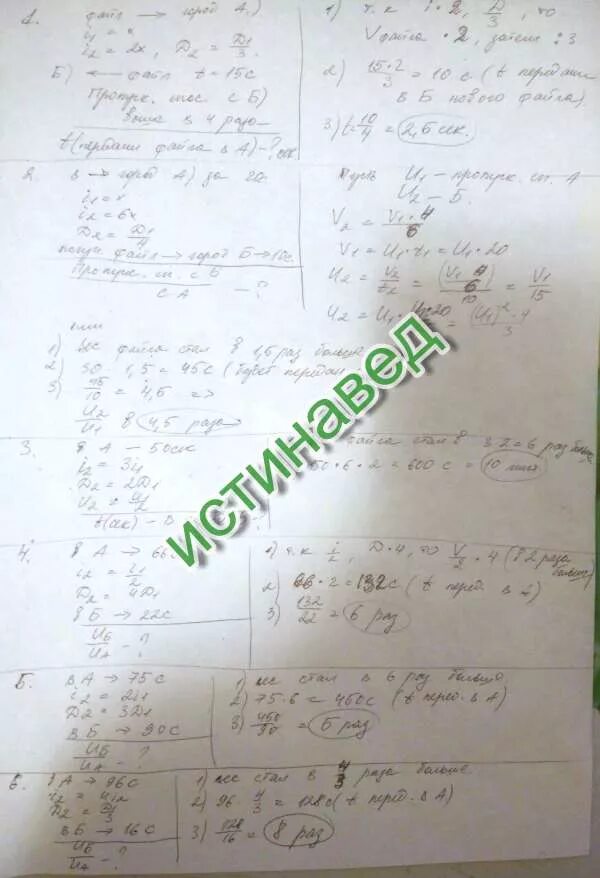 1. файл → город А.)
i₁ = x
i₂ = 2x, D₂ = D₁/3
Б) ← файл t = 15 с
Пропуск. с Б)
выше в 4 раза
t(передачи файла в А) - ?
1) т.к i · 2, D/3, то
V файла · 2, затем : 3
2) 15·2/3 = 10 с (t передачи
в Б нового файла)
3) t = 10/4 = 2,5 сек.
2. в → город А) за
i₁ = x
i₂ = 6x
D₂ = D₁/4
файл → город Б → 10с.
Пропуск. с Б
с А - ?
Пусть U₁ - пропуск. А
U₂ - Б.
V₂ = V₁·4/6
V₁ = U₁ · t₁ = U₁ · 20
U₂ = V₂/t₂ = (V₁ 4/6)/10 = V₁/15
или
1) файла стал в 1,5 раз больше
2) 30 · 1,5 = 45с (будет передан
3) 45/10 = 4,5 =>
U₂/U₁ в 4,5 раза
3. в А - 50сек
i₂ = 3i₁
D₂ = 2D₁
файла стал в 3·2=6 раз
50·6·2 = 600 с = 10 мин
ИСТИНАВЕД
4. в А → 66с
i₂ = i₁/2
D₂ = 4D₁
в Б → 22с
Uб/Uа - ?
1) т.к i/2, D·4, то V/2 · 4 (в 2 раза
больше)
2) 66·2 = 132с (t перед. в А)
3) 132/22 = 6 раз
5. в А → 75с
i₂ = 2i₁
D₂ = 3D₁
в Б → 90с
Uб/Uа - ?
1) вес стал в 6 раз больше
2) 75·6 = 450с (t перед. в А)
3) 450/90 = 5 раз
6. в А → 96с
D₂ = D₁/3
в Б → 16с
Uб/Uа - ?
1) вес стал в 4/3 раза больше
2) 96 · 4/3 = 128с (t перед. в А)
3) 128/16 = 8 раз